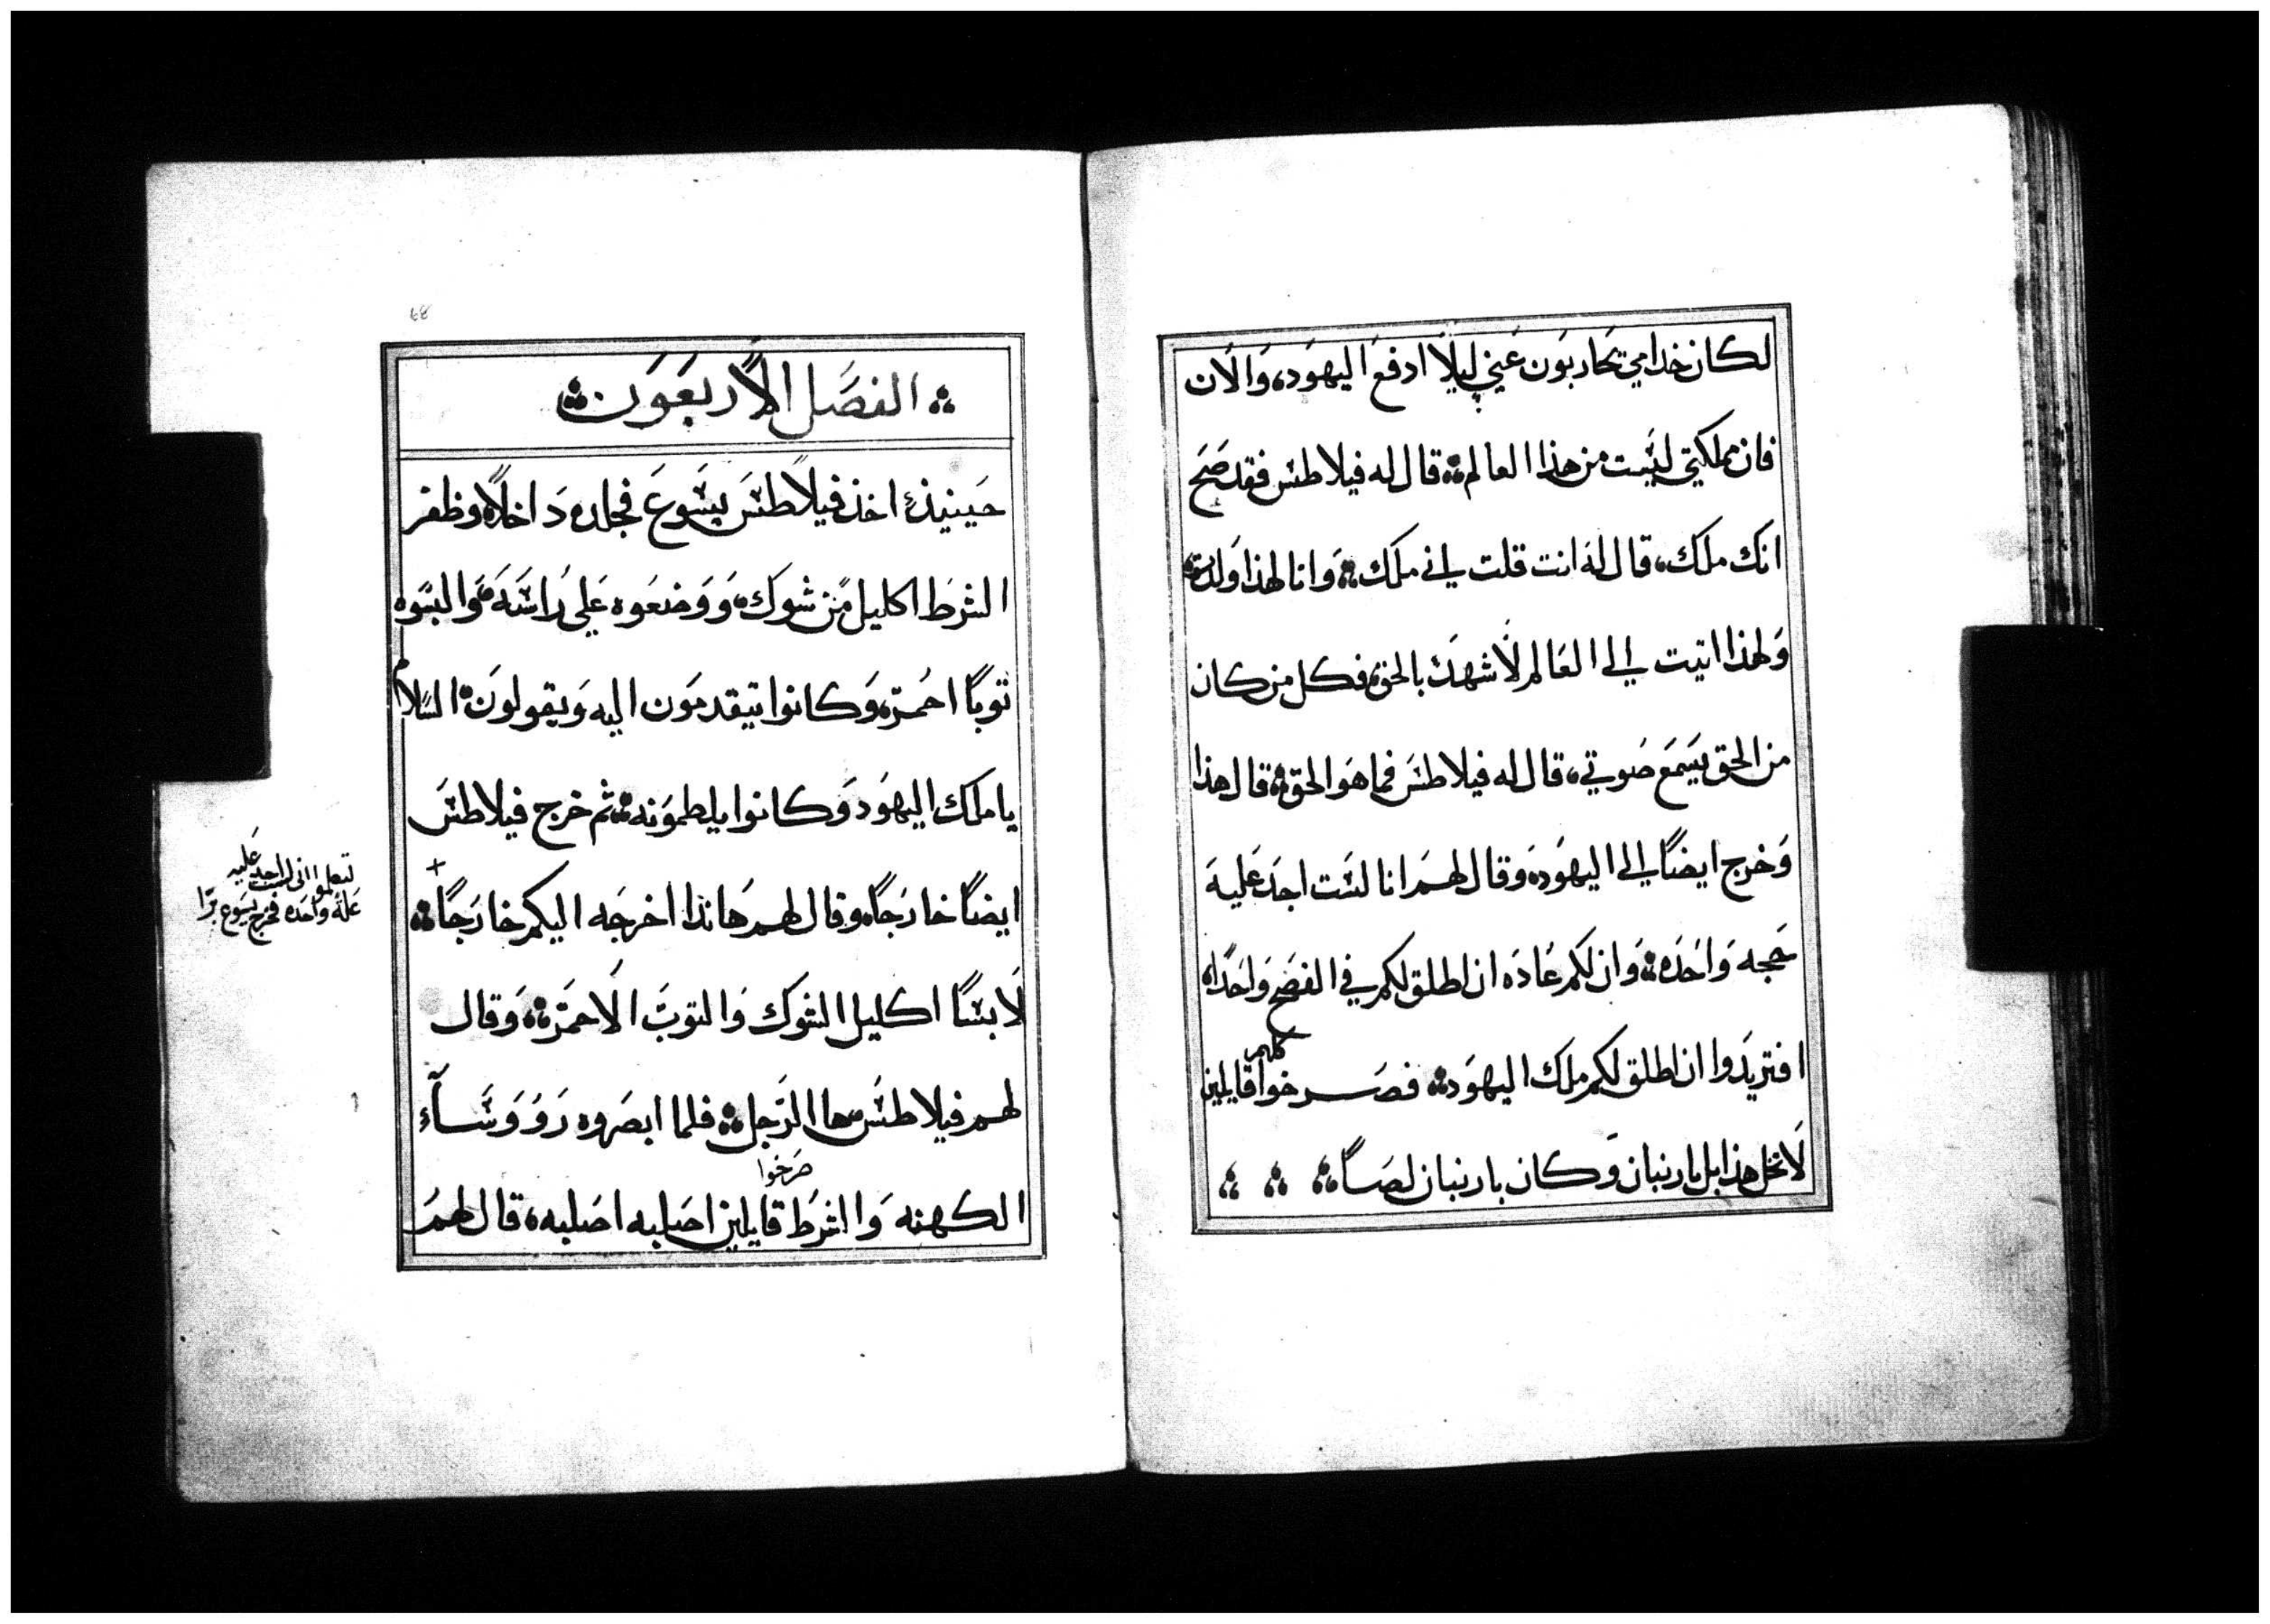 لكان خدامي يحاربون عني ليلا ادفع اليهود، والان
فان مملكتي ليست من هذا العالم؞ قال له فيلاطس فقد صح
انك ملك، قال له انت قلت اني ملك؞ وانا لهذا ولدت،
ولهذا اتيت الى العالم لاشهد بالحق، فكل من كان
من الحق يسمع صوتي، قال له فيلاطس فما هو الحق؞ قال هذا
وخرج ايضًا الى اليهود، وقال لهم انا لست اجد عليه
حجه واحده؞ وان لكم عاده ان اطلق لكم في الفصح واحدًا،
كلهم
افتريدوا ان اطلق لكم ملك اليهود؞ فصرخوا قايلين
لا تخل هذا بل بارنبان وكان بارنبان لصًا؞ ؞ ؞
؞ الفصل الاربعون؞
حينيذ اخذ فيلاطس يسوع فجلده داخلًا، وظفر
الشرط اكليل من شوك، ووضعوه على راسه، والبسوه
توبًا احمر، وكانوا يتقدمون اليه ويقولون، السلام
يا ملك اليهود وكانوا يلطمونه؞ ثم خرج فيلاطس
ايضًا خارجًا، وقال لهم هانذا اخرجه اليكم خارجًا؞ +
لتعلموا اني لست اجد عليه
علة واحده فخرج يسوع برّا
لابسًا اكليل الشوك والتوب الاحمر؞ وقال
لهم فيلاطس ها الرجل؞ فلما ابصروه رووسآء
صرخوا
الكهنه والشرط قايلين اصلبه اصلبه، قال لهم